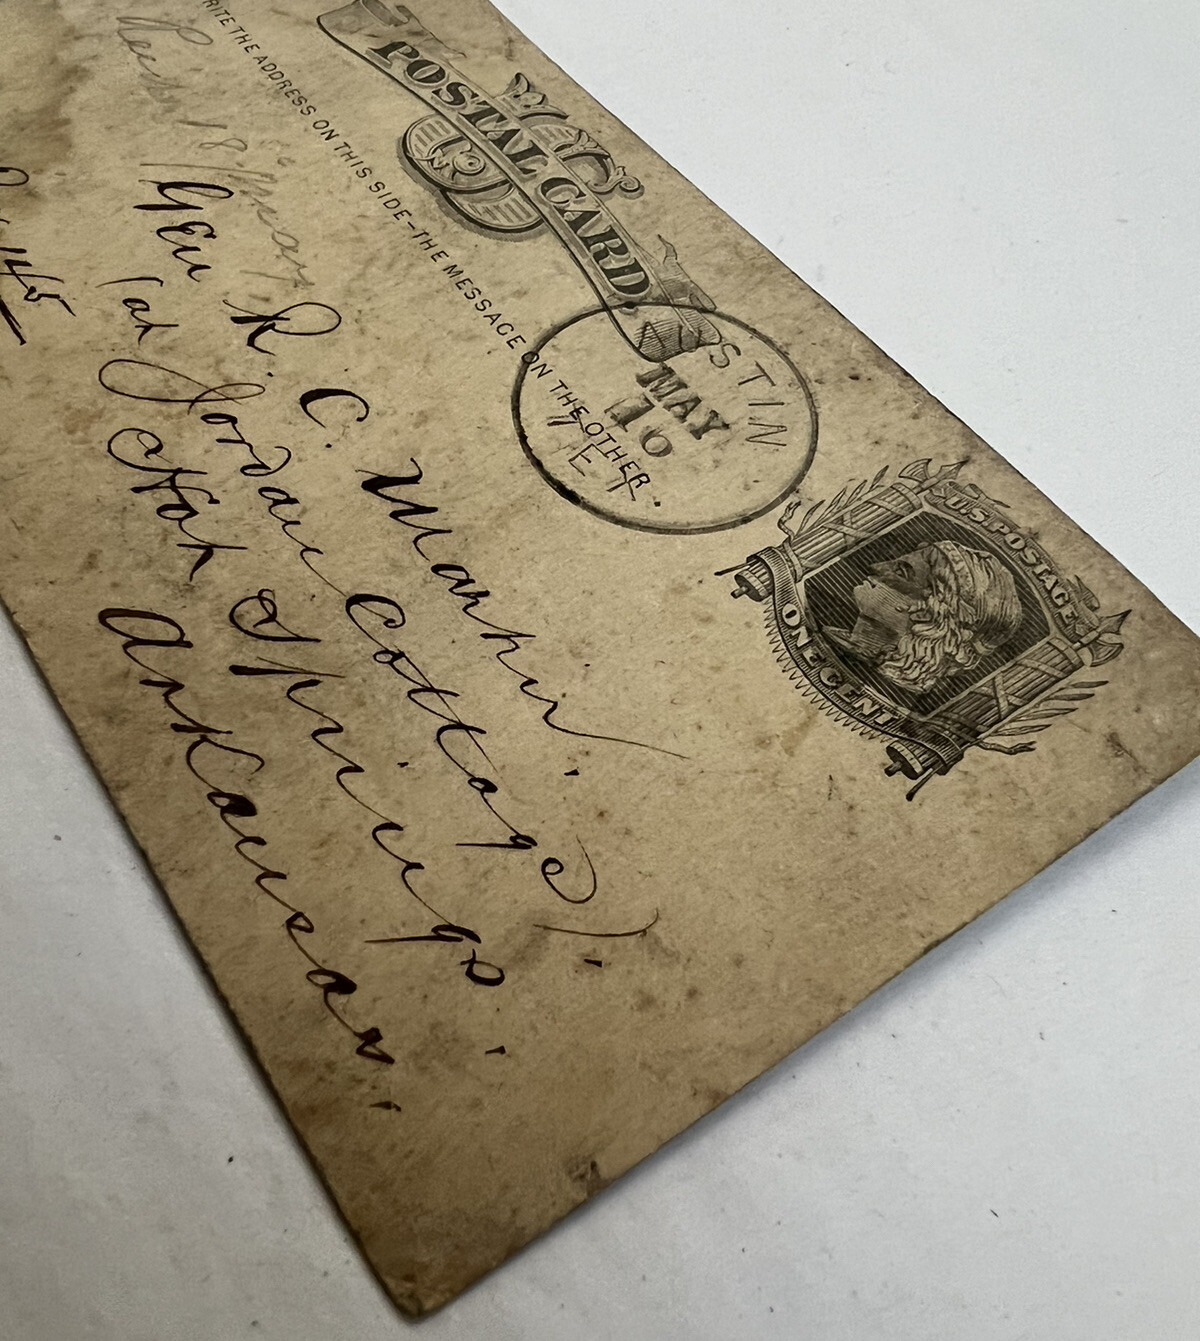 POSTAL CARD
US
WRITE THE ADDRESS ON THIS SIDE-THE MESSAGE ON THE OTHER.
AUSTIN
MAY
10
TEX
U.S. POSTAGE
ONE CENT
18
Gen R. C.
(at Jordan Cottage).
Hot Springs.
Arkansas.
45